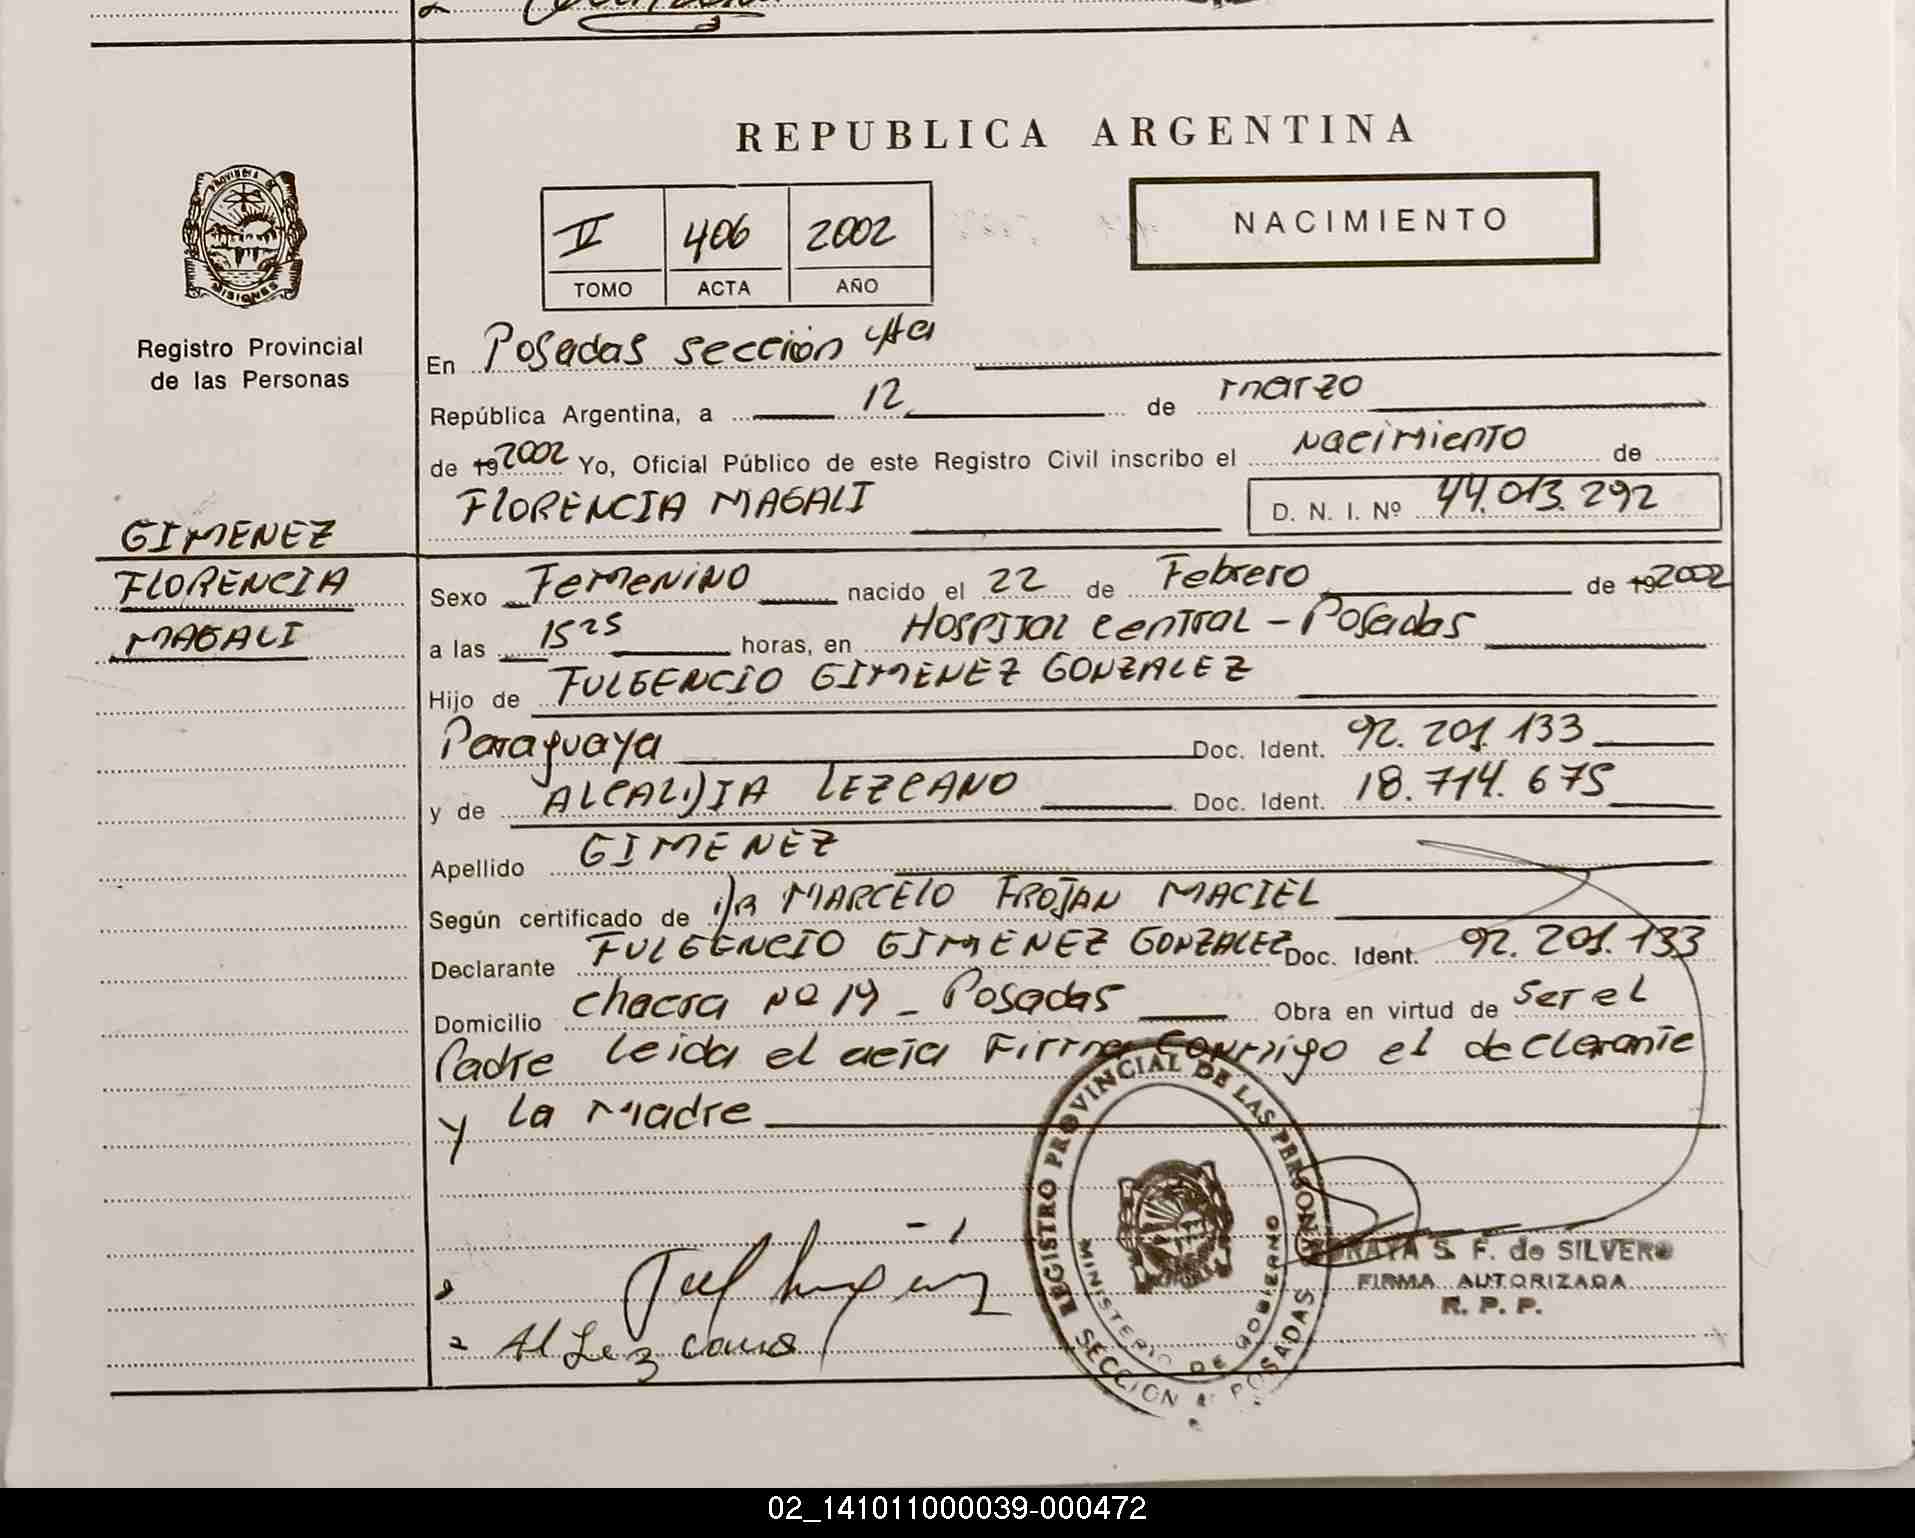 REPUBLICA ARGENTINA
PROVINCIA DE
MISIONES
II 406 2002
TOMO ACTA AÑO
NACIMIENTO
Registro Provincial
de las Personas
En Posadas sección 4ta
República Argentina, a 12 de marzo
de 19 2002 Yo, Oficial Público de este Registro Civil inscribo el Nacimiento de
FLORENCIA MAGALI D. N. I. Nº 44.013.292
GIMENEZ
FLORENCIA
MAGALI
Sexo Femenino nacido el 22 de Febrero de 19 2002
a las 15 25 horas, en HOSPITAL CENTRAL - Posadas
Hijo de FULGENCIO GIMENEZ GONZALEZ
Paraguaya Doc. Ident. 92.201.133
y de LEZCANO Doc. Ident. 18.714.675
Apellido GIMENEZ
Según certificado de MARCELO TROJAN MACIEL
Declarante FULGENCIO GIMENEZ GONZALEZ Doc. Ident. 92.201.133
Domicilio chacra Nº 19 - Posadas Obra en virtud de ser el
Padre leida el acta Firma Conmigo el declarante
y la Madre
REGISTRO PROVINCIAL DE LAS PERSONAS
MINISTERIO DE GOBIERNO
SECCION 4ª POSADAS
S. F. de SILVERO
FIRMA AUTORIZADA
R. P. P.
Al Lezcano
02_141011000039-000472